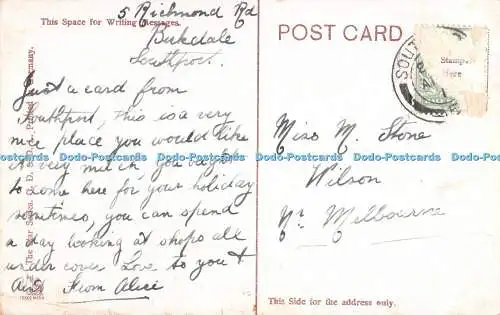 5 Richmond Rd
This Space for Writing Messages.
Birkdale
Southport.
Just a card from
Southport, this is a very
nice place you would like
it very much, you ought
to come here for your holiday
sometimes, you can spend
a day looking at shops all
under cover. Love to you &
From Alice
POST CARD
Stamp
Here
SOUT
Miss M. Stone
Wilson
Nr Melbourne
This Side for the address only.
Dodo-Postcards Dodo-Postcards Dodo-Postcards Dodo-Postcards Dodo-Postcards